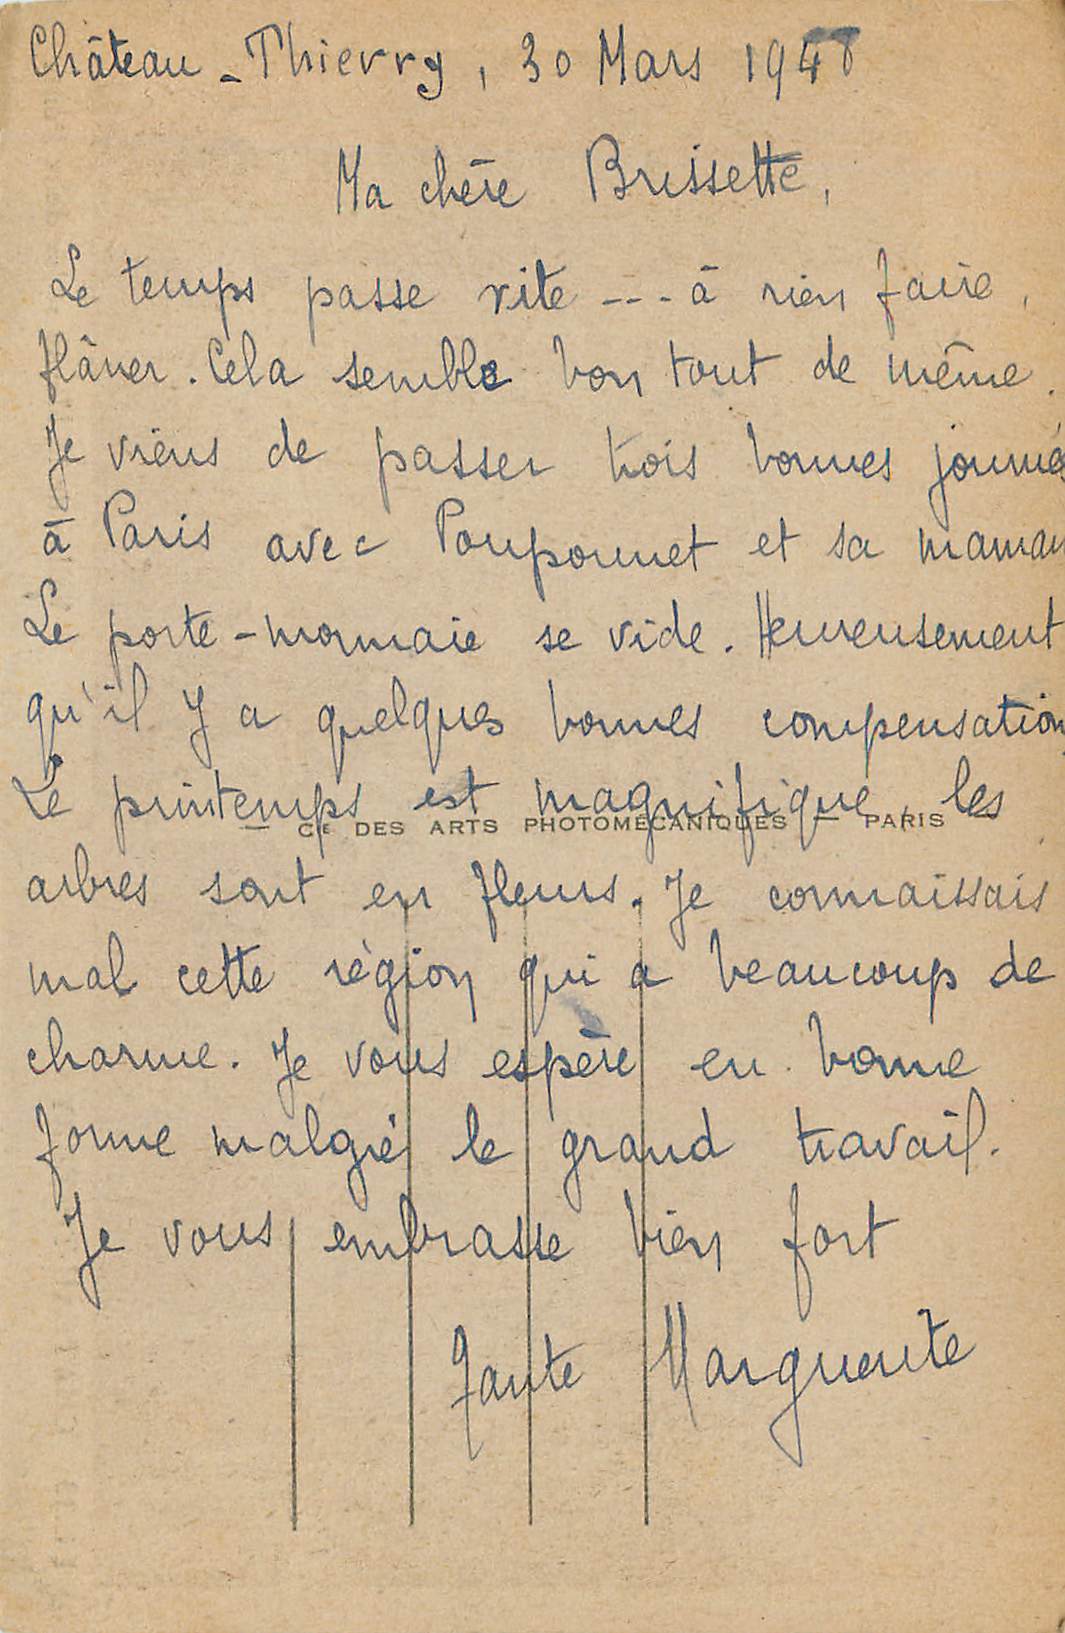 Château-Thierry, 30 Mars 1948
Ma chère Brissette,
Le temps passe vite --- à rien faire,
flâner. Cela semble bon tout de même.
Je viens de passer trois bonnes journé
à Paris avec Pouponnet et sa maman
Le porte-monnaie se vide. Heureusement
qu'il y a quelques bonnes compensation
Le printemps est magnifique, les
— Cie DES ARTS PHOTOMÉCANIQUES — PARIS —
arbres sont en fleurs. Je connaissais
mal cette région qui a beaucoup de
charme. Je vous espère en bonne
forme malgré le grand travail.
Je vous embrasse bien fort
Tante Marguerite